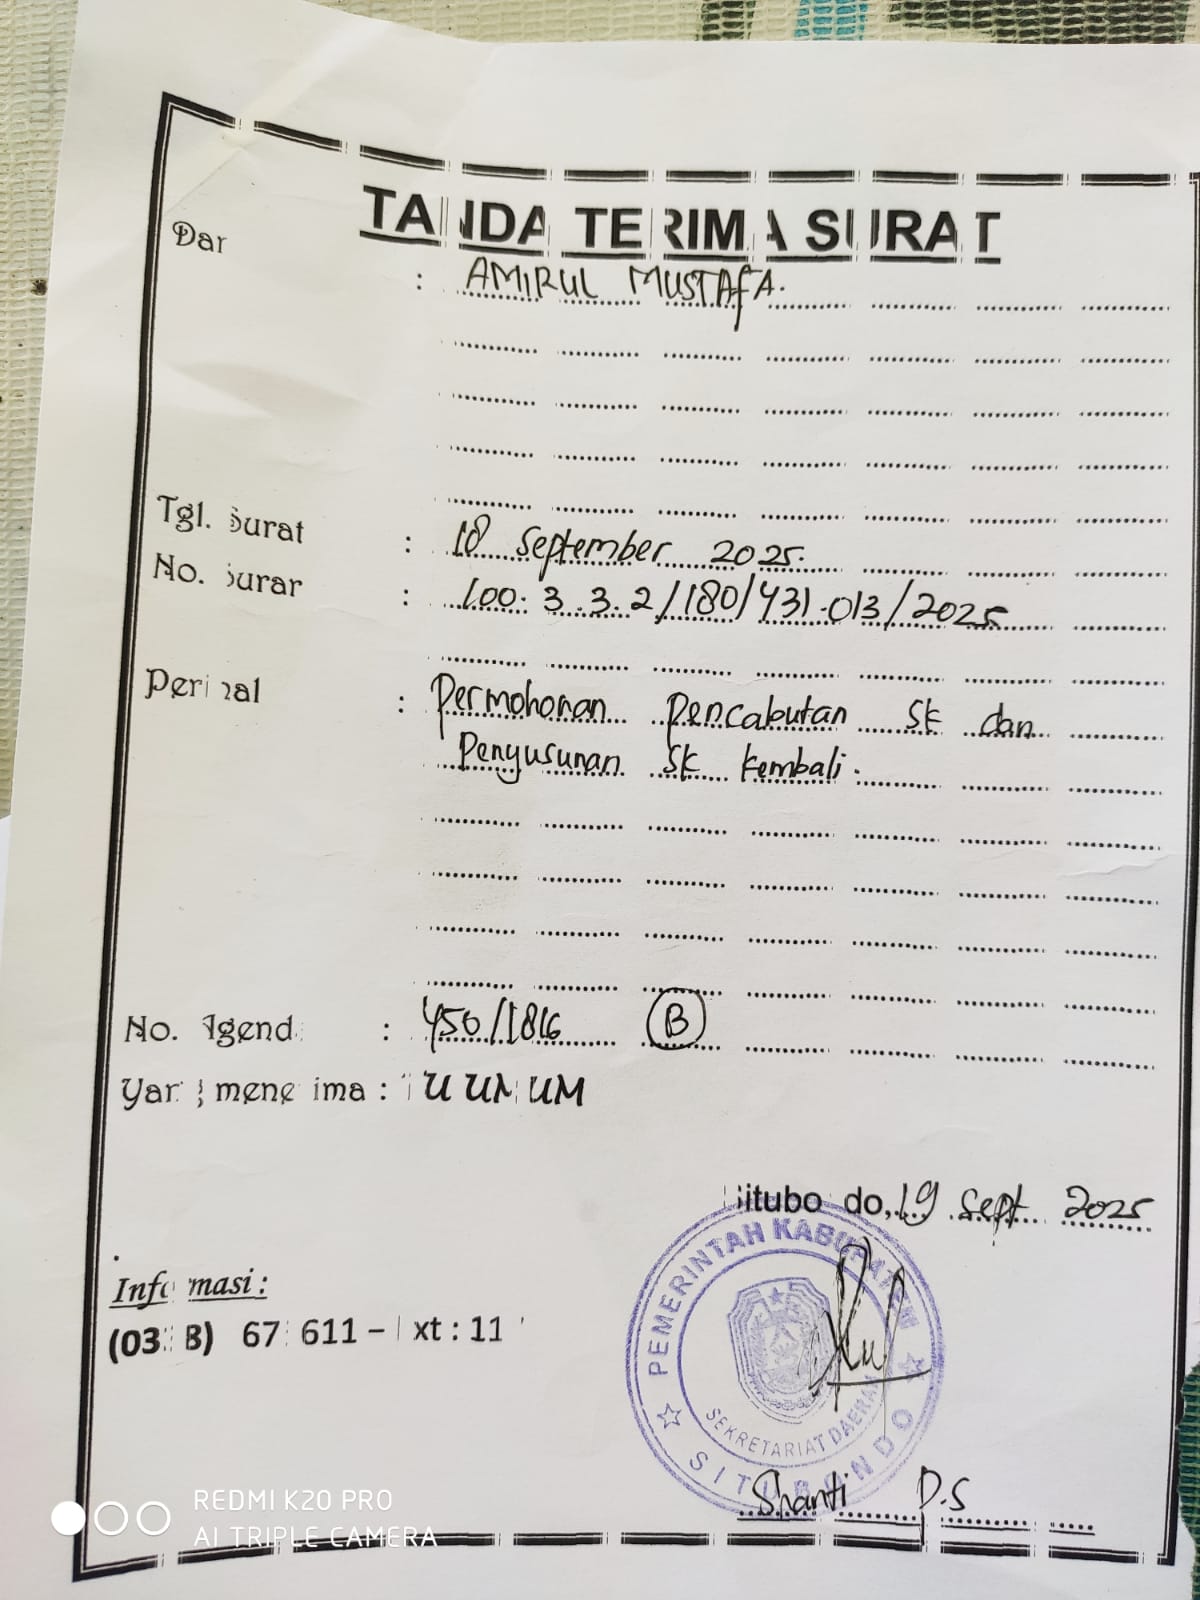 TANDA TERIMA SURAT
Dar : AMIRUL MUSTAFA.
Tgl. Surat : 18 September 2025.
No. Surar : 100.3.3.2/180/431.013/2025
Perihal : Permohonan Pencabutan SK dan
Penyusunan SK kembali.
No. Agend : 450/1816 B
Yang menerima : TU UMUM
Situbondo, 19 Sept 2025
PEMERINTAH KABUPATEN
SEKRETARIAT DAERAH
SITUBONDO
Informasi :
Shanti D.S
REDMI K20 PRO
AI TRIPLE CAMERA